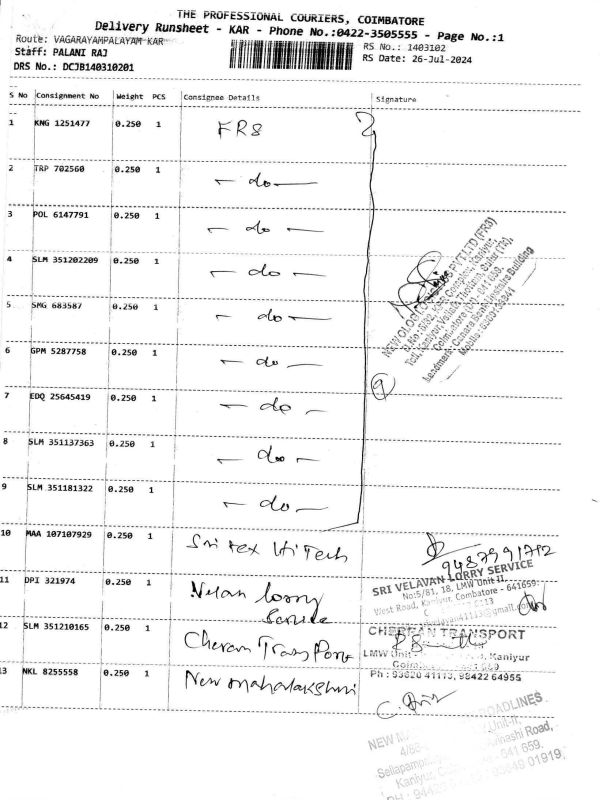 THE PROFESSIONAL COURIERS, COIMBATORE
Delivery Runsheet - KAR - Phone No.:0422-3505555 - Page No.:1
Route: VAGARAYAMPALAYAM KAR
RS No.: 1403102
Staff: PALANI RAJ
RS Date: 26-Jul-2024
DRS No.: DCJB140310201
S No Consignment No Weight PCS Consignee Details Signature
1 KNG 1251477 0.250 1 FRS
2 TRP 702560 0.250 1 — do —
3 POL 6147791 0.250 1 — do —
4 SLM 351202209 0.250 1 — do —
5 SMG 683587 0.250 1 — do —
6 GPM 5287758 0.250 1 — do —
7 EDQ 25645419 0.250 1 — do —
8 SLM 351137363 0.250 1 — do —
9 SLM 351181322 0.250 1 — do —
PVT LTD (FR8)
Landmark: Canara Bank Building
9
10 MAA 107107929 0.250 1 Sri tex Hi Tech
11 DPI 321974 0.250 1 Velan lorry
Service
SRI VELAVAN LORRY SERVICE
No:5/81, 18, LMW Unit II,
West Road, Kaniyur, Coimbatore - 641659.
12 SLM 351210165 0.250 1 Cheran Transport
CHEERAN TRANSPORT
LMW Unit Kaniyur
Ph : 93620 41113, 98422 64955
13 NKL 8255558 0.250 1 New mahalakshmi
NEW ROADLINES
Unit-II,
Avinashi Road,
Kaniyur, 641 659.